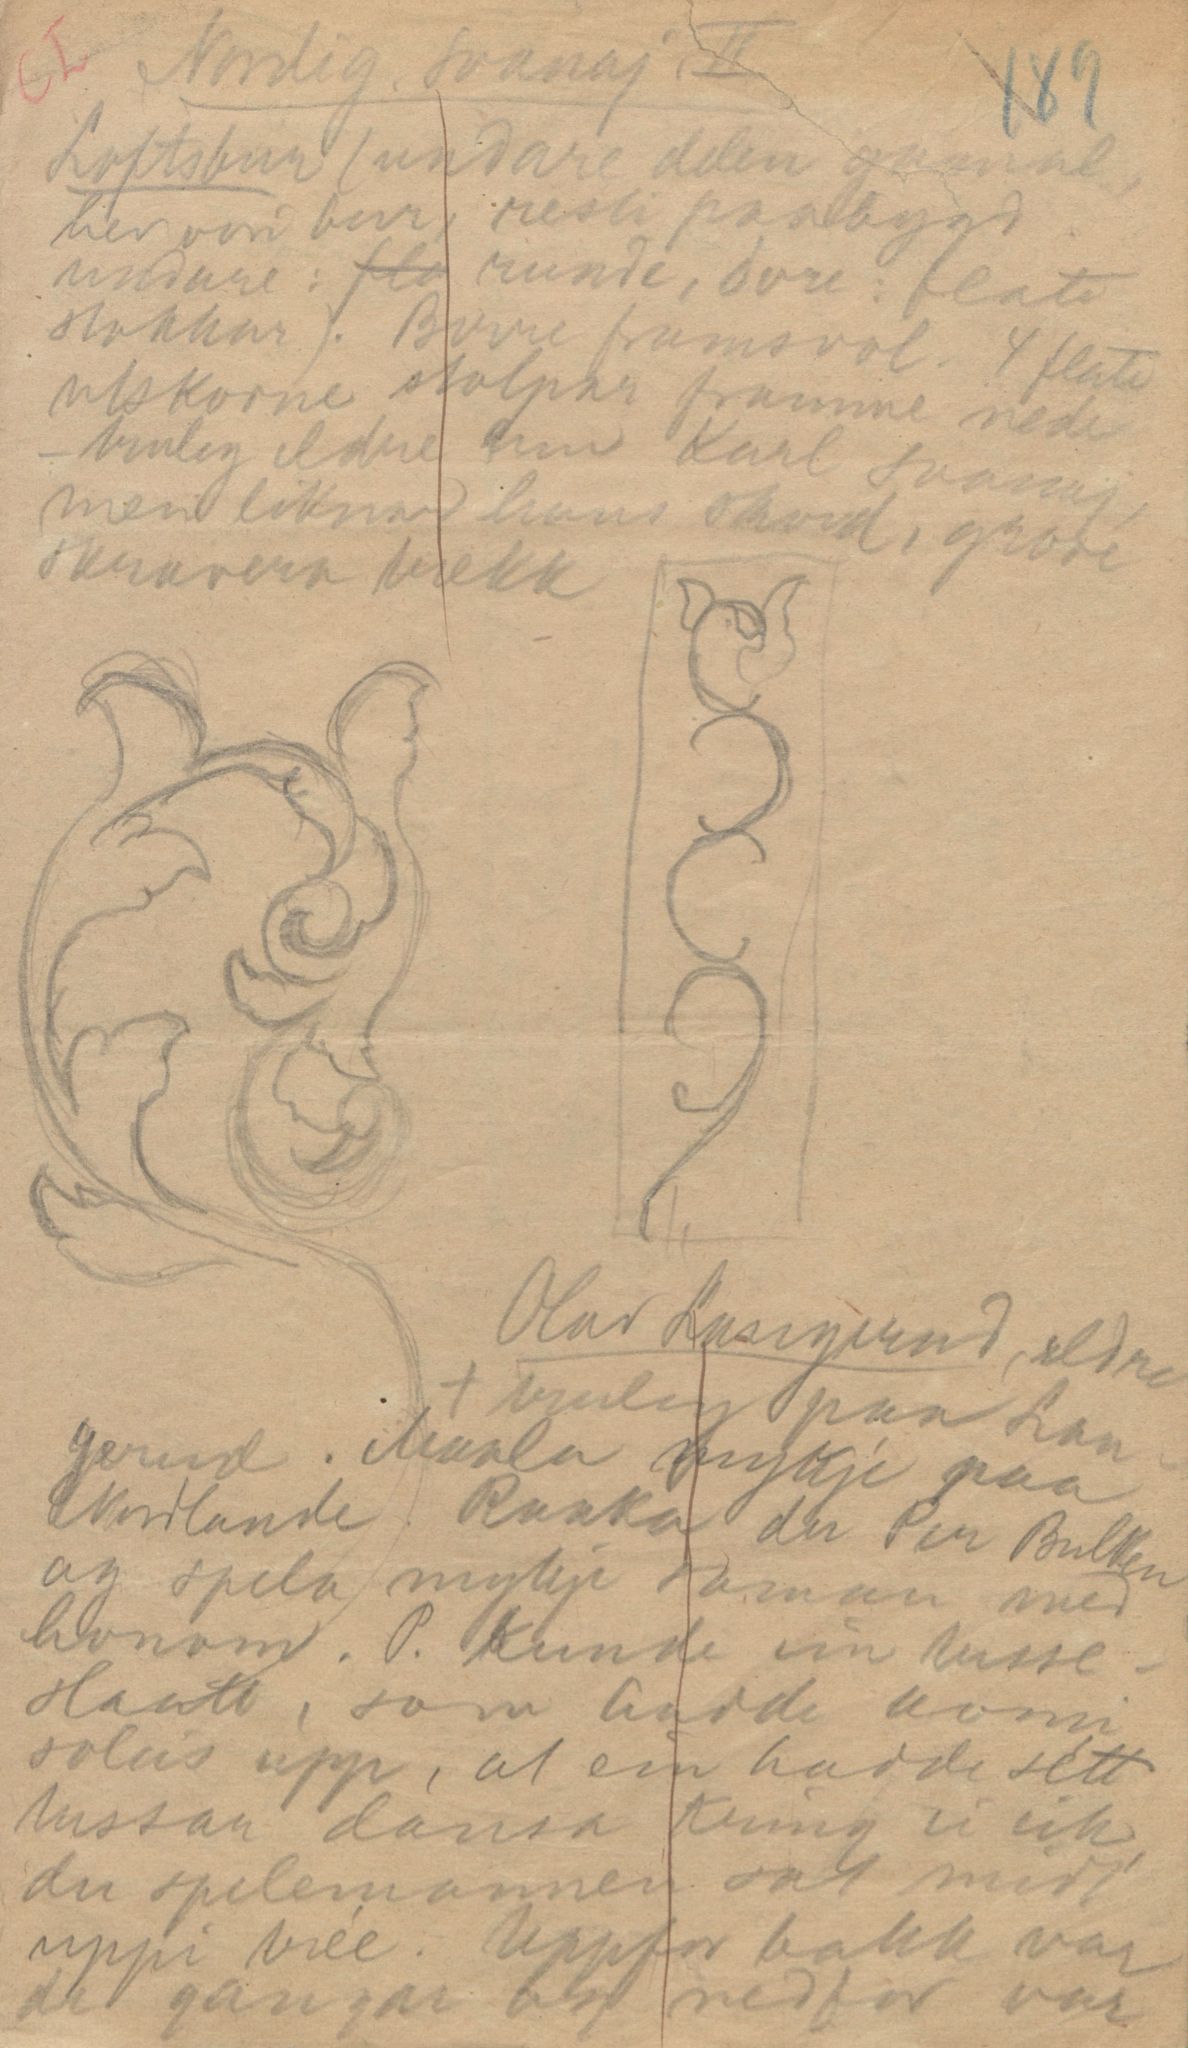 CI
Nordig. Svanøy II
189
Loftsbur (undare delen gamal,
her vori bur, resti paabygd
undare: fla runde, övre: flate
stokkar). Brure framsval. 4 flate
utskorne stolpar framme nede
- truleg eldre enn Karl
men liknar hans skurd, grove
skravera trekk
Olav Langerud, eldre
+ truleg paa Lan-
gerud. Maala mykje paa
Nordlande. Raaka der Per Bulken
og spela mykje saman med
honom. P. kunde ein tusse-
slaatt, som hadde komi
soleis upp, at ein hadde sétt
tussar dansa kring ei eik,
der spelemannen sat midt
uppi tréé. Uppfor bakk var
de gangar og nedfor var